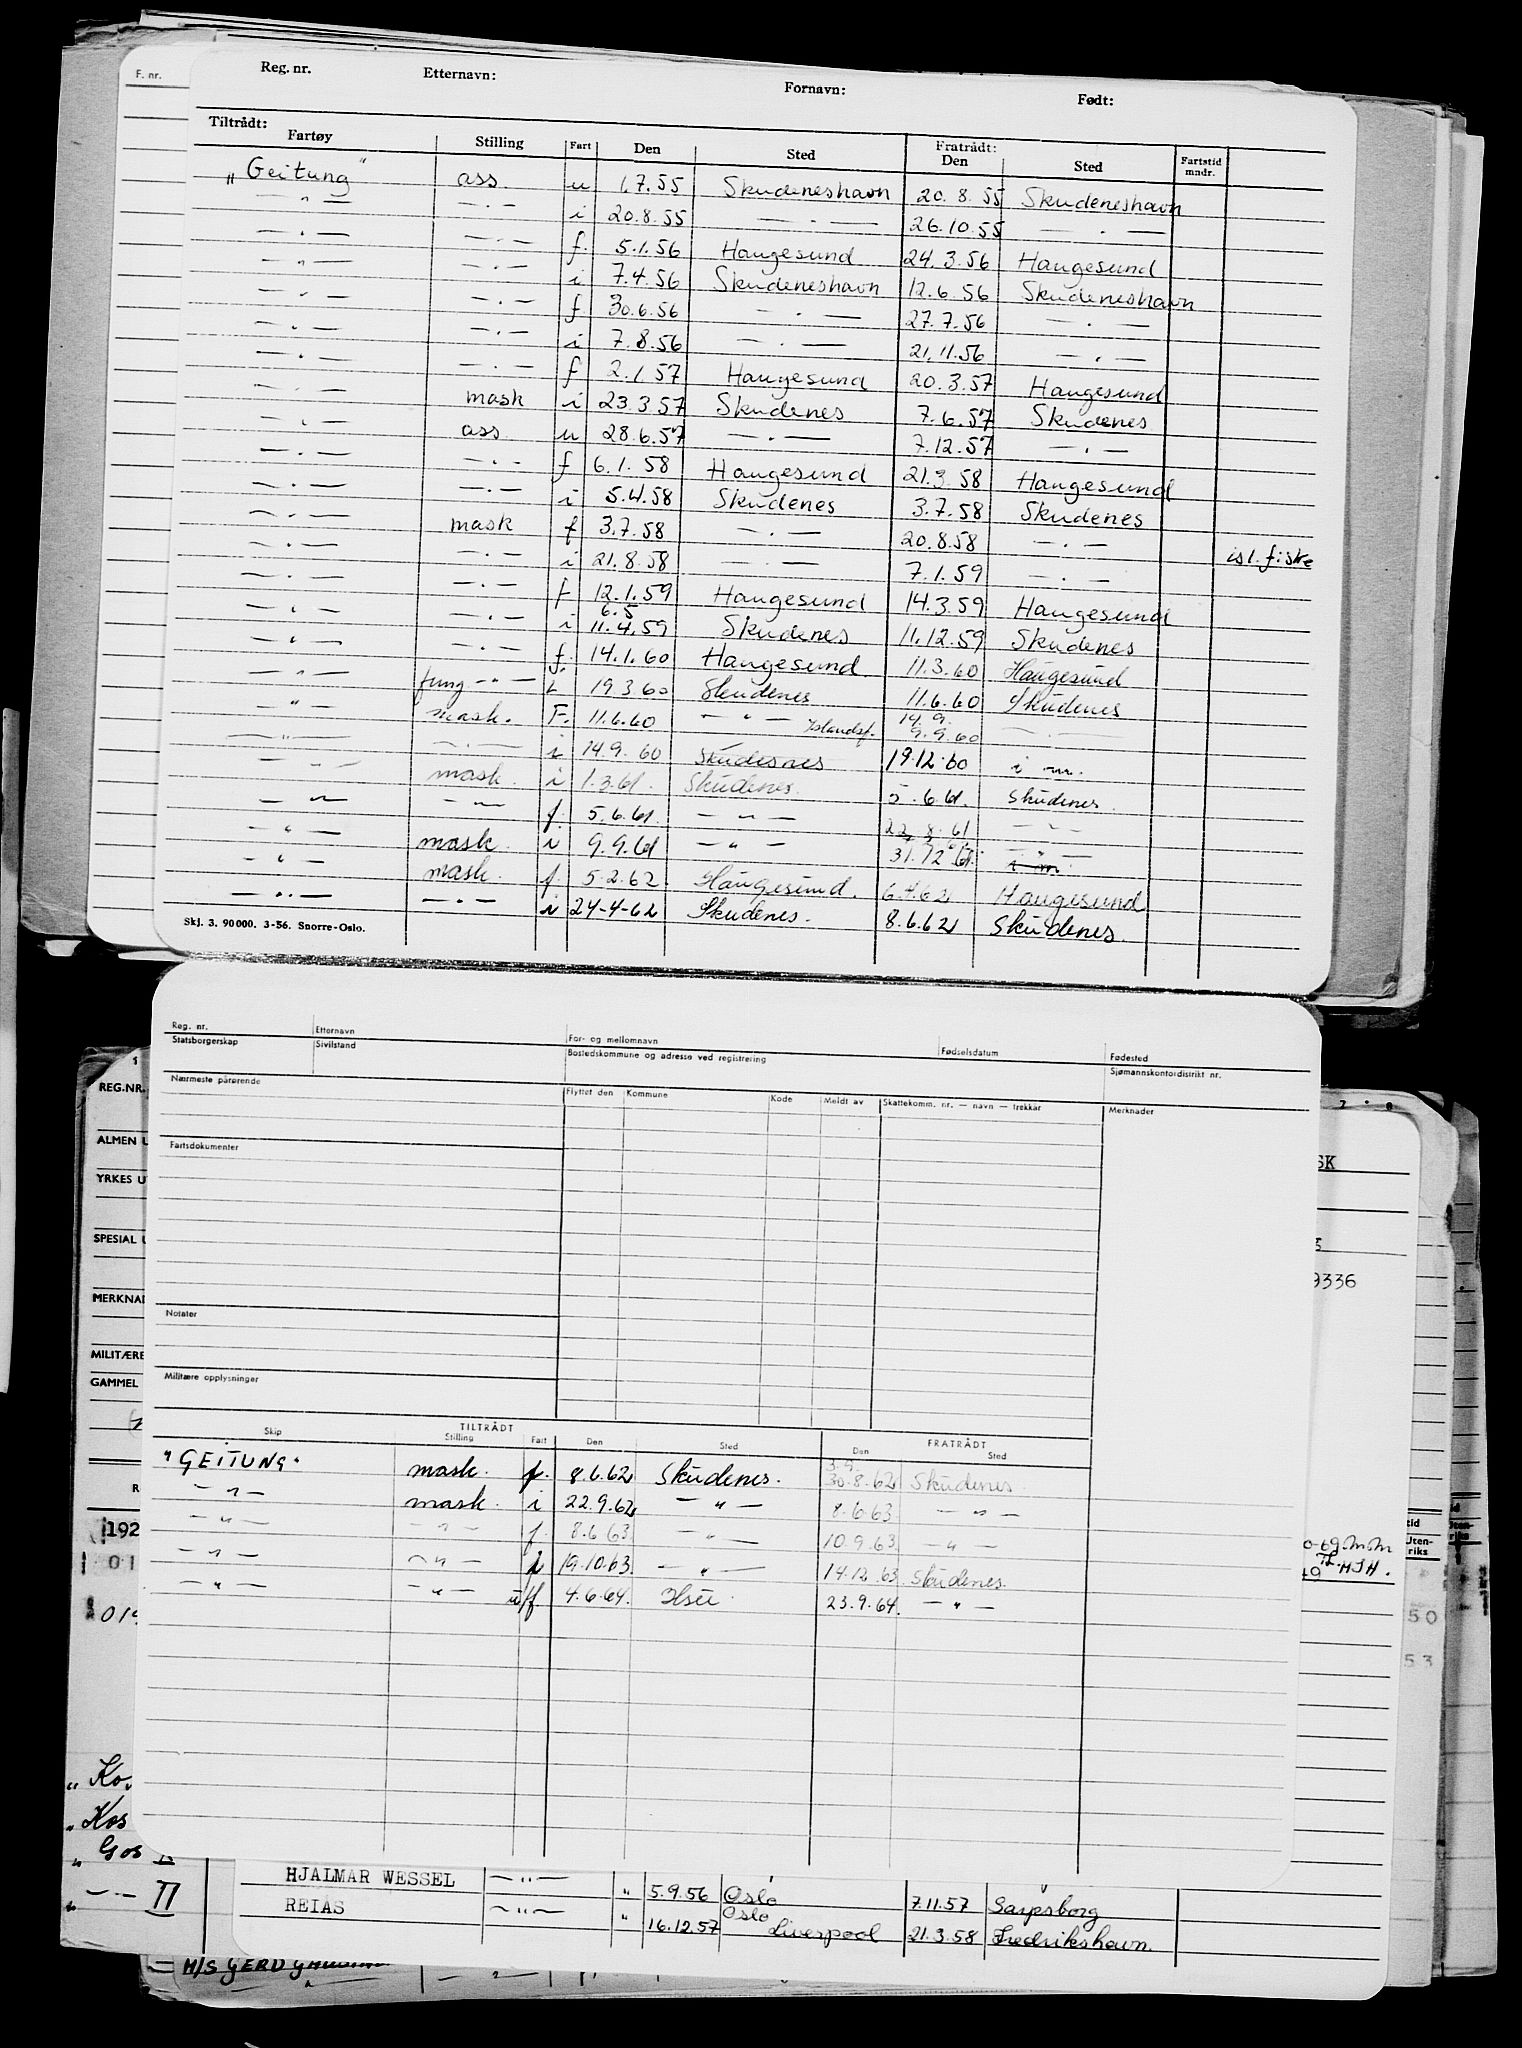 F. nr.
Reg. nr. Etternavn: Fornavn: Født:
Tiltrådt: Fratrådt:
Fartøy Stilling Fart Den Sted Den Sted Fartstid mndr.
„Geitung" ass u 1.7.55 Skudeneshavn 20.8.55 Skudeneshavn
—"— —.— i 20.8.55 —.— 26.10.55 —.—
—"— —.— f. 5.1.56 Haugesund 24.3.56 Haugesund
—"— —.— i 7.4.56 Skudeneshavn 12.6.56 Skudeneshavn
—"— —.— f. 30.6.56 —.— 27.7.56 —.—
—"— —.— i 7.8.56 —.— 21.11.56 —.—
—"— —.— f 2.1.57 Haugesund 20.3.57 Haugesund
—.— mask i 23.3.57 Skudenes 7.6.57 Skudenes
—.— ass u 28.6.57 —.— 7.12.57 —.—
—.— —.— f 6.1.58 Haugesund 21.3.58 Haugesund
—.— —.— i 5.4.58 Skudenes 3.7.58 Skudenes
—.— mask f 3.7.58 —.— 20.8.58 —.— isl. fiske
—.— —.— i 21.8.58 —.— 7.1.59 —.—
—.— —.— f 12.1.59 Haugesund 14.3.59 Haugesund
6.5
—.— —.— i 11.4.59 Skudenes 11.12.59 Skudenes
—"— —.— f. 14.1.60 Haugesund 11.3.60 Haugesund
—"— fung —"— i 19 3.60 Skudenes 11.6.60 Skudenes
—"— mask. F. 11.6.60 —"— Islandsf. 14.9. 9.9.60 —.—
—"— —.— i 14.9.60 Skudesnes 19.12.60 i m.
—"— mask. i 1.3.61. Skudenes. 5.6.61. Skudenes.
—"— —"— f. 5.6.61. —"— 22.8.61 —"—
—"— mask. i 9.9.61 —"— 31.12.61. i m.
—"— mask. f. 5.2.62. Haugesund. 6.4.62 Haugesund
—"— —.— i 24-4-62 Skudenes. 8.6.62 Skudenes.
Skj. 3. 90000. 3-56. Snorre-Oslo.
Reg. nr. Etternavn For- og mellomnavn Fødselsdatum Fødested
Statsborgerskap Sivilstand Bostedskommune og adresse ved registrering Sjømannskontordistrikt nr.
Nærmeste pårørende Flyttet den Kommune Kode Meldt av Skattekomm. nr. — navn — trekkår Merknader
Fartsdokumenter
Notater
Militære opplysninger
TILTRÅDT FRATRÅDT
Skip Stilling Fart Den Sted Den Sted
"GEITUNG" mask. f. 8.6.62 Skudenes. 3.9. 30.8.62 Skudenes.
—"— mask. i 22.9.62 —"— 8.6.63 —"—
—"— —"— f. 8.6.63 —"— 10.9.63 —"—
—"— —"— i 19.10.63 —"— 14.12.63 Skudenes.
—"— —"— i/f 4.6.64. 23.9.64. —"—
REG.NR.
ALMEN U
YRKES U
SPESIAL U
MERKNAD
MILITÆRE
GAMMEL
R
192
01
019
SK
9336
HJH.
Uten-
riks
50
53
„ Ko.
„ Kos
„ Gos II
„ —.— II
HJALMAR WESSEL —"— " 5.9.56 Oslo 7.11.57 Sarpsborg
REIÅS —"— " 16.12.57 Oslo Liverpool 21.3.58 Fredrikshavn.
M/S GERD